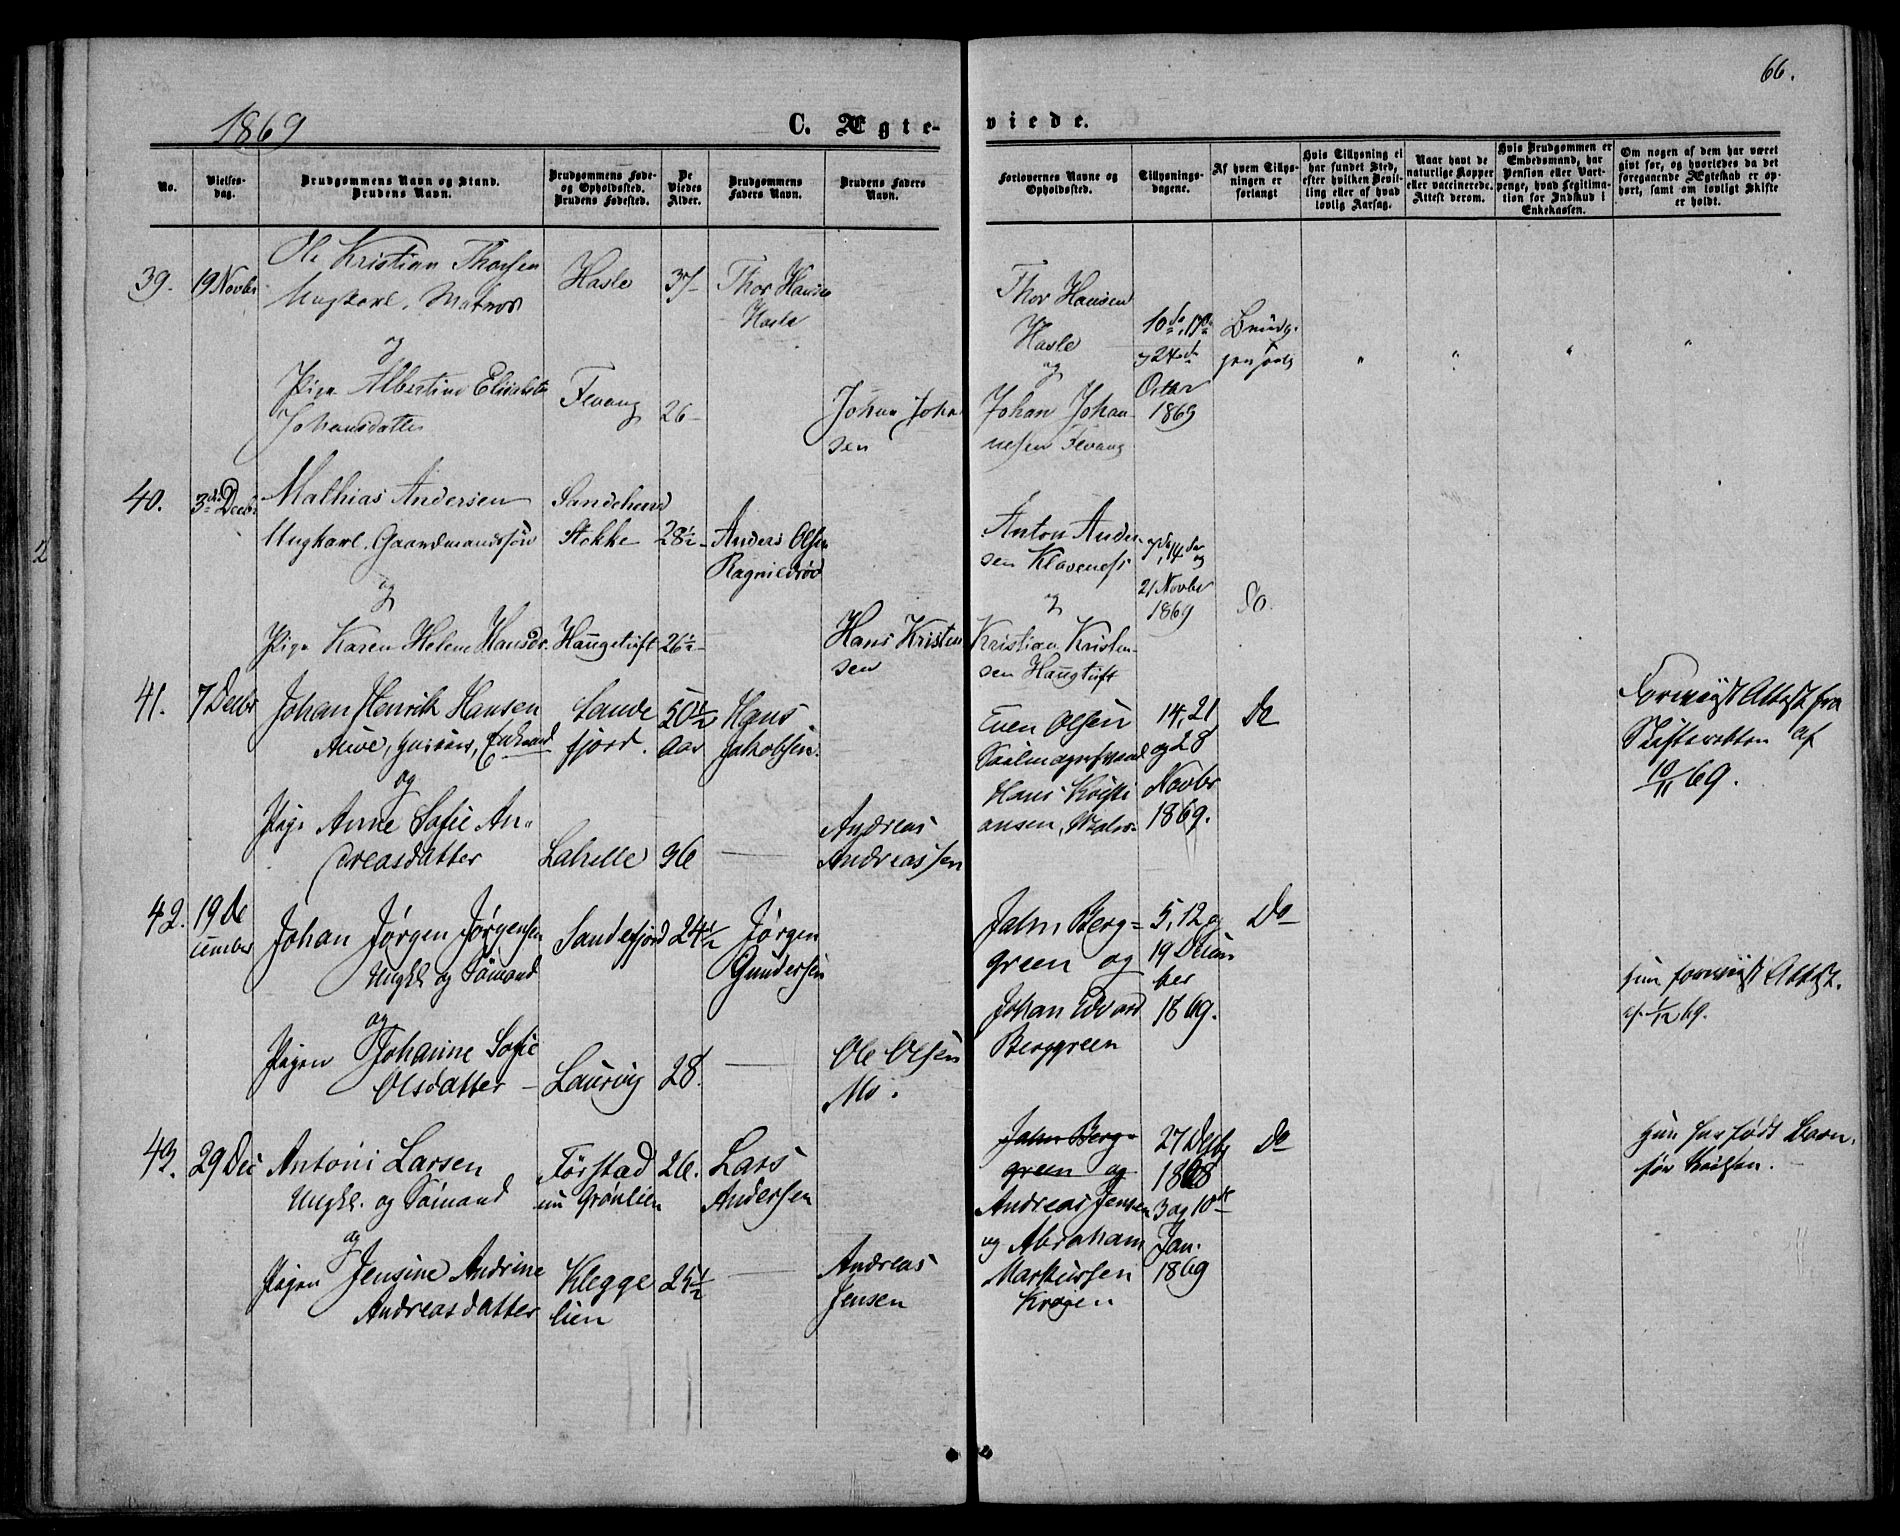 66.
1869
C. Ægte-
viede.
No.
Vielses-
dag.
Brudgommens Navn og Stand.
Brudens Navn.
Brudgommens Føde-
og Opholdssted.
Brudens Fødested.
De
Viedes
Alder.
Brudgommens
Faders Navn.
Brudens Faders
Navn.
Forlovernes Navne og
Opholdssted.
Tillysnings-
dagene.
Af hvem Tillys-
ningen er
forlangt
Hvis Tillysning ei
har fundet Sted,
efter hvilken Bevil-
ling eller af hvad
lovlig Aarsag.
Naar havt de
naturlige Kopper
eller vaccinerede.
Attest derom.
Hvis Brudgommen er
Embedsmand, har
Pension eller Vart-
penge, hvad Legitima-
tion for Indskud i
Enkekassen.
Om nogen af dem har været
givt før, og hvorledes da det
foregaaende Ægteskab er op-
hørt, samt om lovligt Skifte
er holdt.
39.
19 Novbr
Ole Kristian Thorsen
Ungkarl, Matros
og
Pige Albertine Elisabeth
Johansdatter
Hasle
Fevang
37
26
Thor Hansen
Hasle
Johan Johan
sen
Thor Hansen
Hasle
og
Johan Johan-
nesen Fevang
10de, 17de
og 24de
Octbr
1869
40.
3die Decbr
Mathias Andersen
Ungkarl, Gaardmandssøn
og
Pige Karen Helene Hansdr.
Stokke
Haugetuft
28½
26½
Anders Olsen
Ragnildrød
Hans Kristen
sen
Anton Ander-
sen Klaveness
og
Kristian Kristen-
sen Haugtuft
7de, 14de og
21 Novbr
1869
Do.
41.
7 Decbr
Johan Henrik Hansen
Auve, Enkemand
og
Pige Anne Sofie An-
dreasdatter
Sande
fjord.
Lahelle
50½
Aar
36
Hans
Jakobsen.
Andreas
Andreassen
Even Olsen
Hans Kristi
ansen,
14, 21
og 28
Novbr
1869.
Do
Forevist Attest fra
Skifteretten af
10/11 69.
42.
19 De
cember
Johan Jørgen Jørgensen
Ungkl og Sömand
og
Pigen Johanne Sofie
Olsdatter
Sandefjord
Laurvig
24½
28
Jørgen
Gundersen
Ole Olsen
Mo.
Jahn Berg-
green og
Johan Edvard
Berggreen
5, 12 og
19 Decem
ber
1869.
Do
hun forevist Attest.
af 1/12 69.
43.
29 Dec
Antoni Larsen
Ungkl. og Sömand
og
Pigen Jensine Andrine
Andreasdatter
Förstad
nu Grönlien
Klegge
lien
26.
25½
Lars
Andersen
Andreas
Jensen
Jahn Berg-
green og
Andreas Jensen
og Abraham
Markussen
Krogen
27 Decbr
1868
3 og 10de
Jan.
1869
Do
Hun har født Barn
før Vielsen.